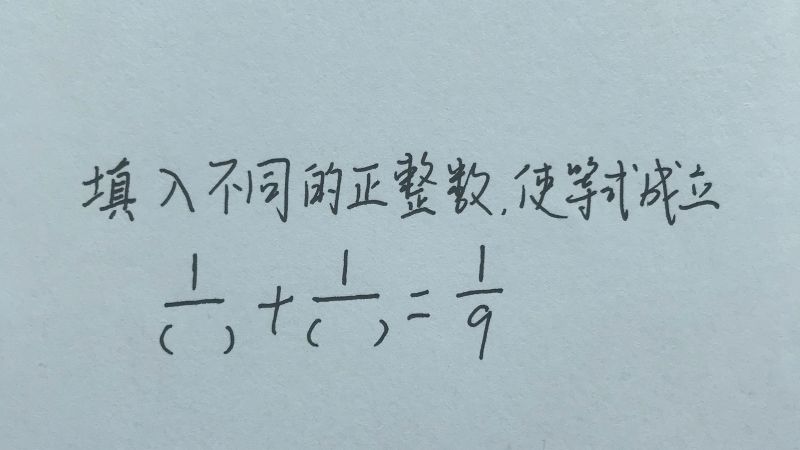 填入不同的正整数,使等式成立
1/( ) + 1/( ) = 1/9